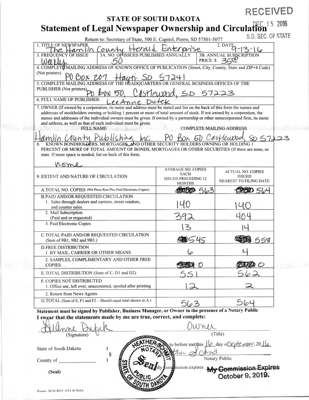 RECEIVED
DEC 15 2016
S.D. SEC OF STATE
STATE OF SOUTH DAKOTA
Statement of Legal Newspaper Ownership and Circulation
Return to: Secretary of State, 500 E. Capitol, Pierre, SD 57501-5077
1. TITLE OF NEWSPAPER
The Hamlin County Herald Enterprise
2. DATE
9-13-16
3. FREQUENCY OF ISSUE
Weekly
3A. NO. OF ISSUES PUBLISHED ANNUALLY
50
3B. ANNUAL SUBSCRIPTION
PRICE $ 35.00
4. COMPLETE MAILING ADDRESS OF KNOWN OFFICE OF PUBLICATION (Street, City, County, State and ZIP+4 Code)
(Not printers)
PO Box 207 Hayti SD 57241
5. COMPLETE MAILING ADDRESS OF THE HEADQUARTERS OR GENERAL BUSINESS OFFICES OF THE
PUBLISHER (Not printer)
Po Box 50, Castlewood, SD 57223
6. FULL NAME OF PUBLISHER
LeeAnne Dufek
7. OWNER (If owned by a corporation, its name and address must be stated and list on the back of this form the names and
addresses of stockholders owning or holding 1 percent or more of total amount of stock. If not owned by a corporation, the
names and addresses of the individual owners must be given. If owned by a partnership or other unincorporated firm, its name
and address, as well as that of each individual must be given.
FULL NAME
COMPLETE MAILING ADDRESS
Hamlin County Publishing Inc
PO Box 50 Castlewood, SD 57223
8. KNOWN BONDHOLDERS, MORTGAGES, AND OTHER SECURITY HOLDERS OWNING OR HOLDING 1
PERCENT OR MORE OF TOTAL AMOUNT OF BONDS, MORTGAGES OR OTHER SECURITIES (If there are none, so
state. If more space is needed, list on back of this form.
none
9. EXTENT AND NATURE OF CIRCULATION
AVERAGE NO. COPIES
EACH
ISSUED PRECEDING 12
MONTHS
ACTUAL NO. COPIES
ISSUED
NEAREST TO FILING DATE
A. TOTAL NO. COPIES (Net Press Run Plus Paid Electronic Copies)
563
564
B. PAID AND/OR REQUESTED CIRCULATION
1. Sales through dealers and carriers, street vendors,
and counter sales.
140
140
2. Mail Subscription
(Paid and or requested)
392
404
3. Paid Electronic Copies
13
14
C. TOTAL PAID AND/OR REQUESTED CIRCULATION
(Sum of 9B1, 9B2 and 9B3.)
545
558
D. FREE DISTRIBUTION
1. BY MAIL, CARRIER OR OTHER MEANS
6
4
2. SAMPLES, COMPLIMENTARY AND OTHER FREE
COPIES
0
0
E. TOTAL DISTRIBUTION (Sum of C, D1 and D2)
551
562
F. COPIES NOT DISTRIBUTED
1. Office use, left over, unaccounted, spoiled after printing
12
2
2. Return from News Agents
G. TOTAL (Sum of E, F1 and F2 - Should equal total shown in A.)
563
564
Statement must be signed by Publisher, Business Manager, or Owner in the presence of a Notary Public
I swear that the statements made by me are true, correct, and complete:
LeeAnne Dufek
Owner
(Signature)
(Title)
State of South Dakota )
County of )
(Seal)
NOTARY
Seal
PUBLIC
SOUTH DAKOTA
Notary Public
My Commission Expires
October 9, 2019.